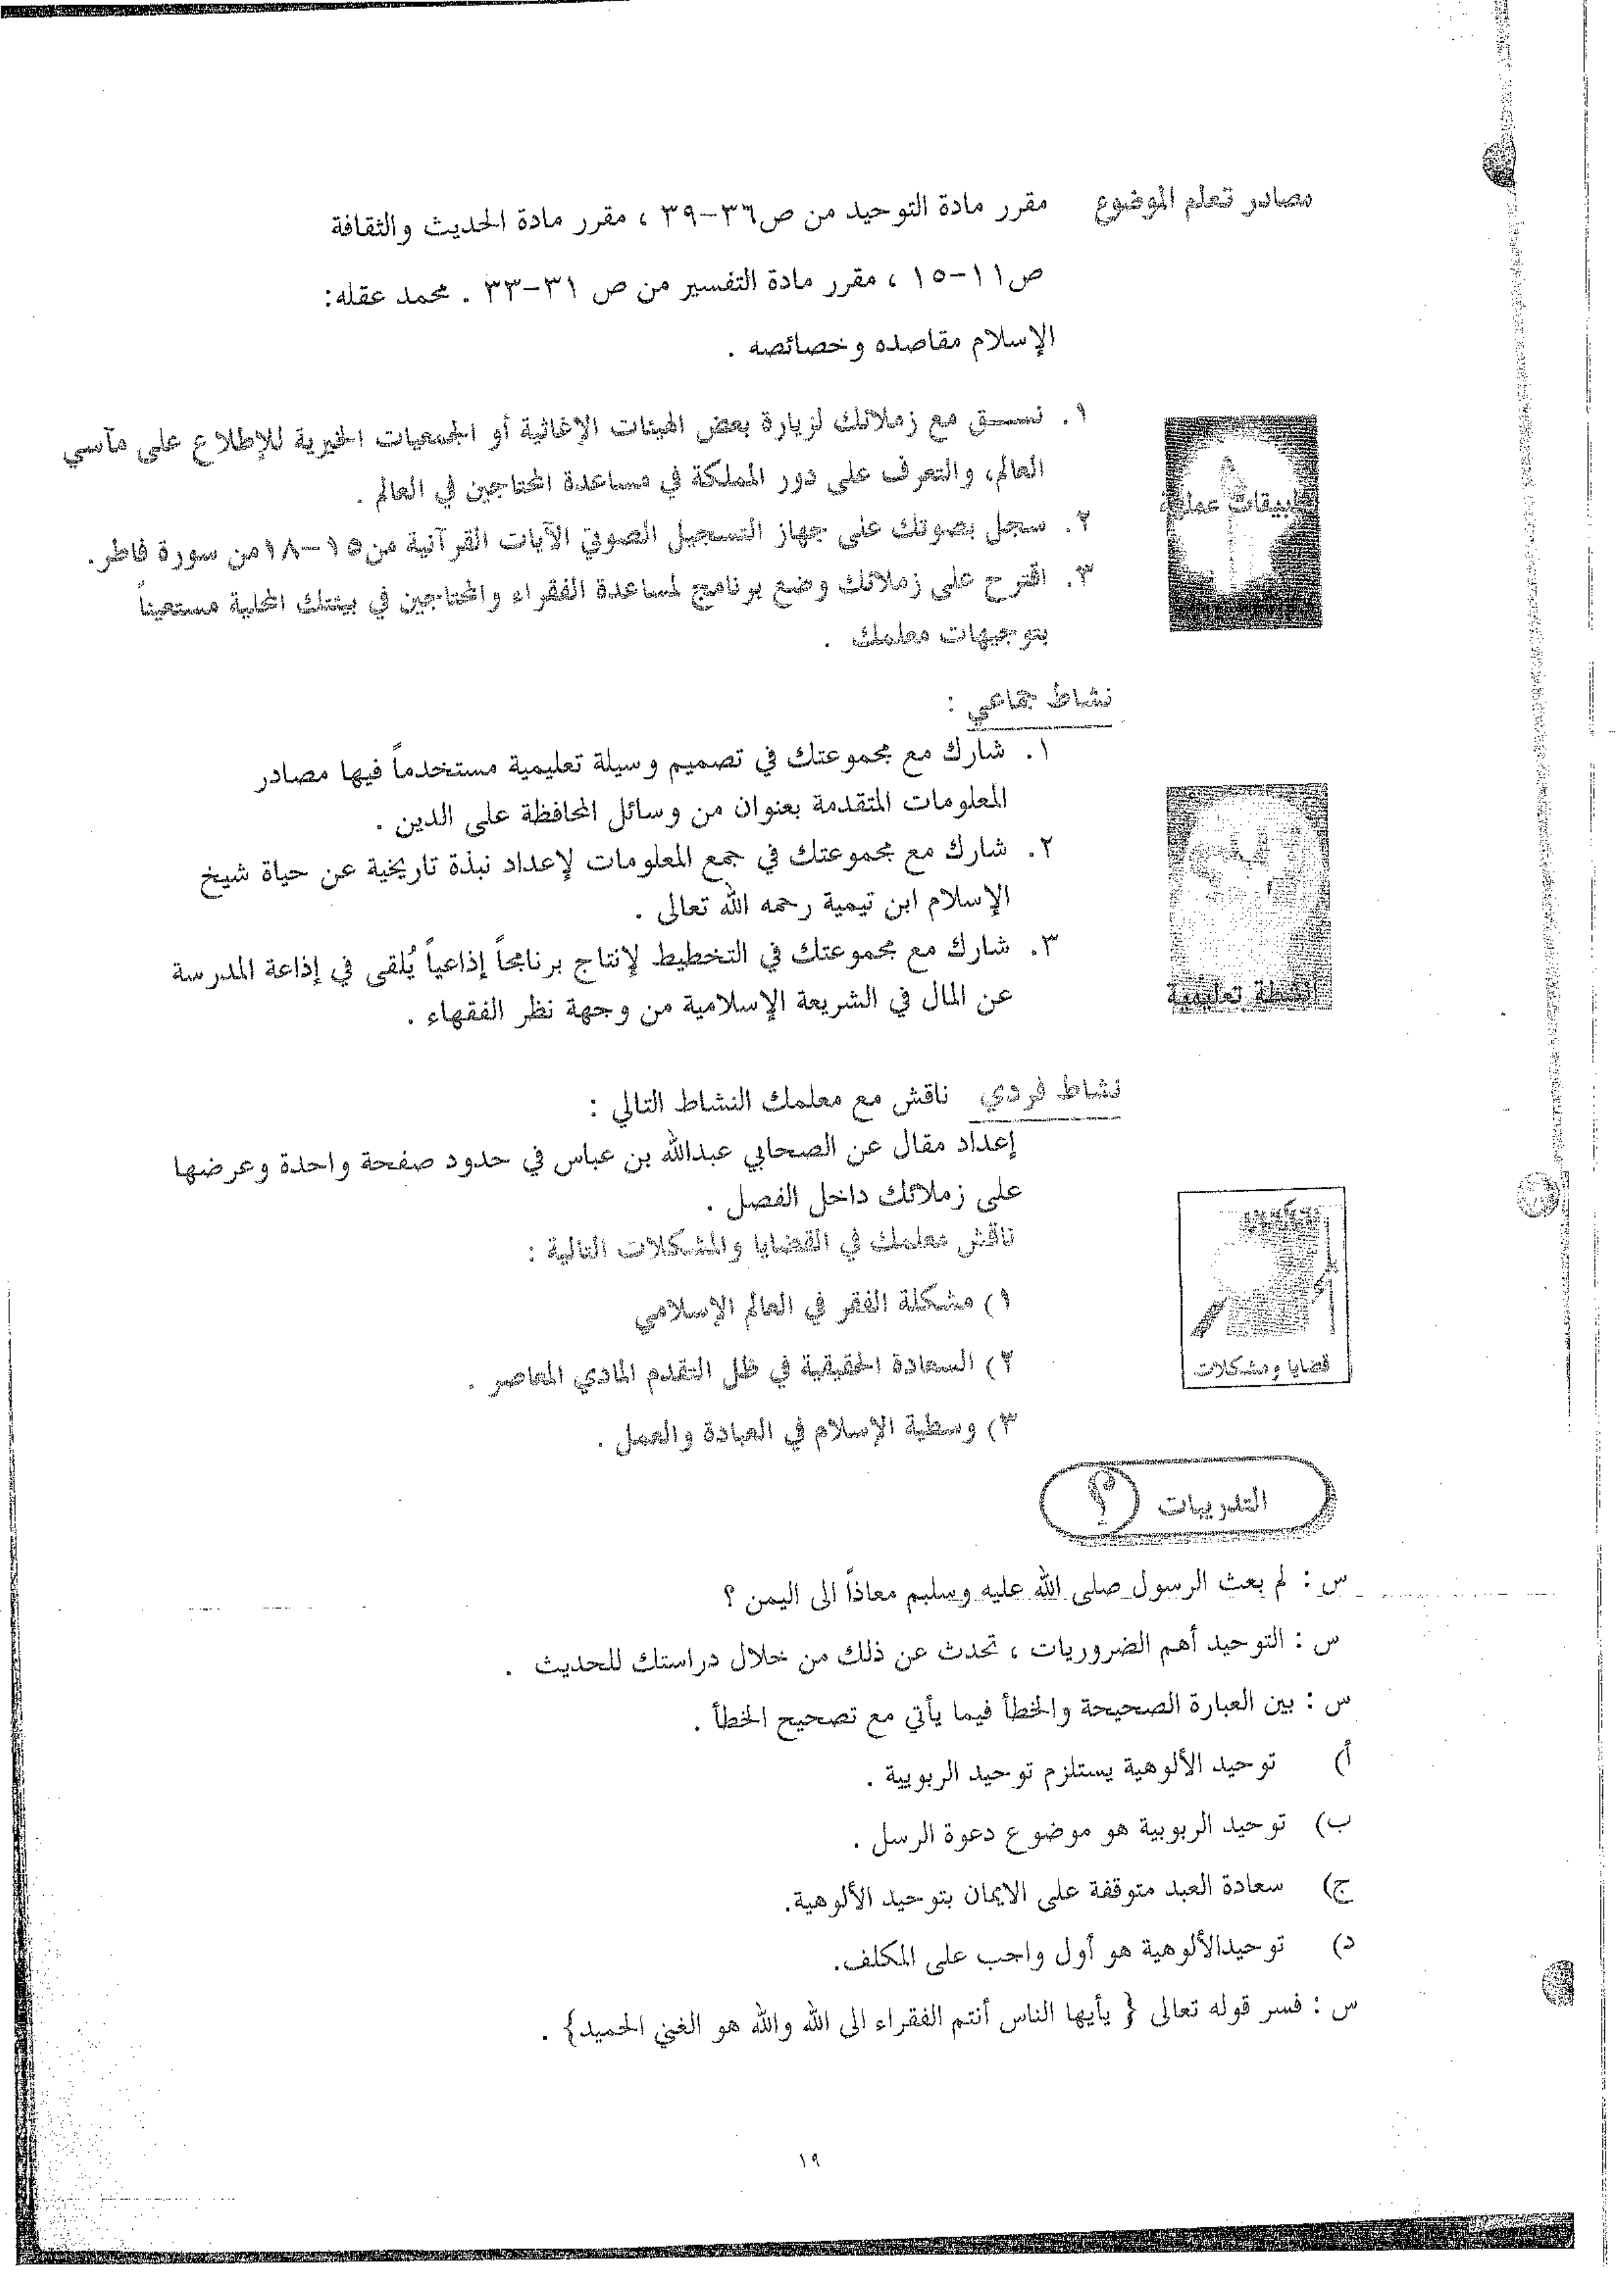 مصادر تعلم الموضوع مقرر مادة التوحيد من ص٣٦-٣٩ ، مقرر مادة الحديث والثقافة
ص١١-١٥ ، مقرر مادة التفسير من ص ٣١-٣٣ . محمد عقله:
الإسلام مقاصده وخصائصه .
١. نسـق مع زملائك لزيارة بعض الهيئات الإغاثية أو الجمعيات الخيرية للإطلاع على مآسي
العالم، والتعرف على دور المملكة في مساعدة المحتاجين في العالم .
تطبيقات عملية
٢. سجل بصوتك على جهاز التسجيل الصوتي الآيات القرآنية من١٥-١٨من سورة فاطر.
٣. اقترح على زملائك وضع برنامج لمساعدة الفقراء والمحتاجين في بيئتك المحلية مستعيناً
بتوجيهات معلمك .
نشاط جماعي :
١. شارك مع مجموعتك في تصميم وسيلة تعليمية مستخدماً فيها مصادر
المعلومات المتقدمة بعنوان من وسائل المحافظة على الدين .
٢. شارك مع مجموعتك في جمع المعلومات لإعداد نبذة تاريخية عن حياة شيخ
الإسلام ابن تيمية رحمه الله تعالى .
٣. شارك مع مجموعتك في التخطيط لإنتاج برنامجاً إذاعياً يُلقى في إذاعة المدرسة
أنشطة تعليمية
عن المال في الشريعة الإسلامية من وجهة نظر الفقهاء .
نشاط فردي ناقش مع معلمك النشاط التالي :
إعداد مقال عن الصحابي عبدالله بن عباس في حدود صفحة واحدة وعرضها
على زملائك داخل الفصل .
ناقش معلمك في القضايا والمشكلات التالية :
١) مشكلة الفقر في العالم الإسلامي
٢) السعادة الحقيقية في ظل التقدم المادي المعاصر .
قضايا ومشكلات
٣) وسطية الإسلام في العبادة والعمل .
التدريبات ؟
س : لم بعث الرسول صلى الله عليه وسلم معاذاً الى اليمن ؟
س : التوحيد أهم الضروريات ، تحدث عن ذلك من خلال دراستك للحديث .
س : بين العبارة الصحيحة والخطأ فيما يأتي مع تصحيح الخطأ .
أ) توحيد الألوهية يستلزم توحيد الربوبية .
ب) توحيد الربوبية هو موضوع دعوة الرسل .
ج) سعادة العبد متوقفة على الايمان بتوحيد الألوهية.
د) توحيدالألوهية هو أول واجب على المكلف.
س : فسر قوله تعالى { يأيها الناس أنتم الفقراء الى الله والله هو الغني الحميد} .
١٩